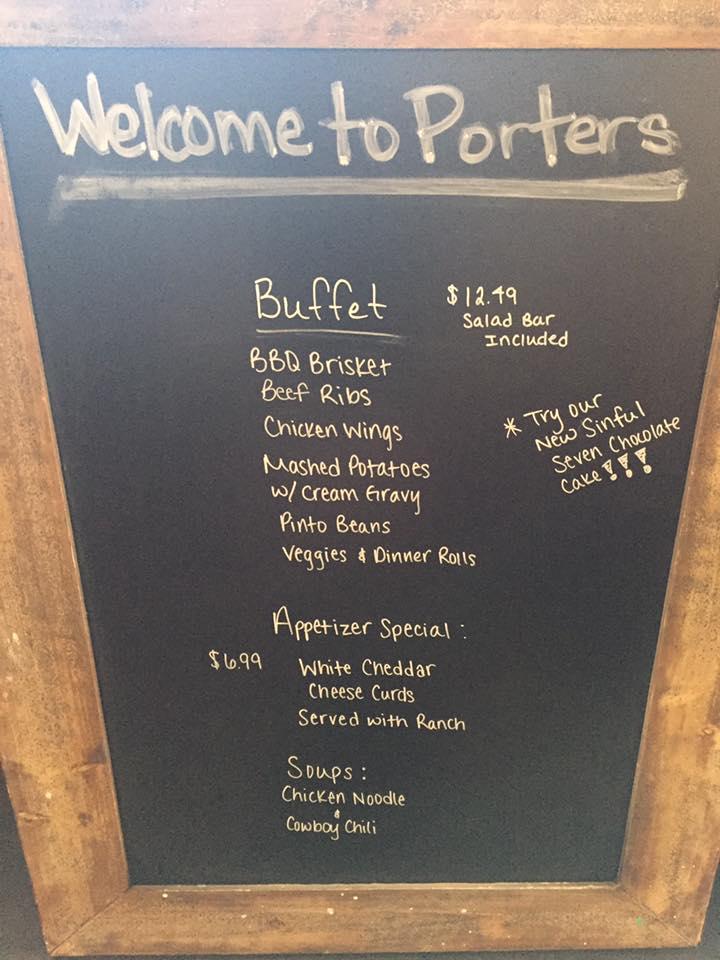 Welcome to Porters
Buffet
$12.49
Salad Bar
Included
BBQ Brisket
Beef Ribs
Chicken Wings
Mashed Potatoes
w/ Cream Gravy
Pinto Beans
Veggies & Dinner Rolls
* Try our
New Sinful
Seven Chocolate
Cake!!!
Appetizer Special:
$6.99 White Cheddar
Cheese Curds
Served with Ranch
Soups:
Chicken Noodle
&
Cowboy Chili